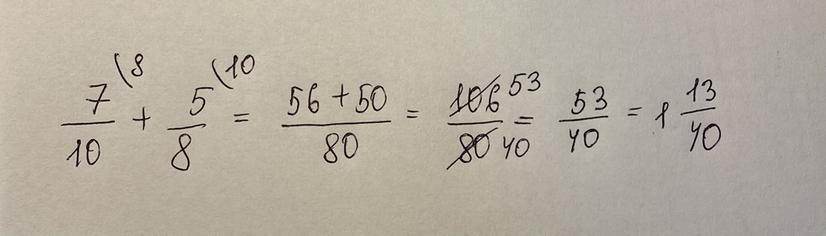 7/10 \8 + 5/8 \10 = 56+50/80 = 106/80 53/40 = 53/40 = 1 13/40